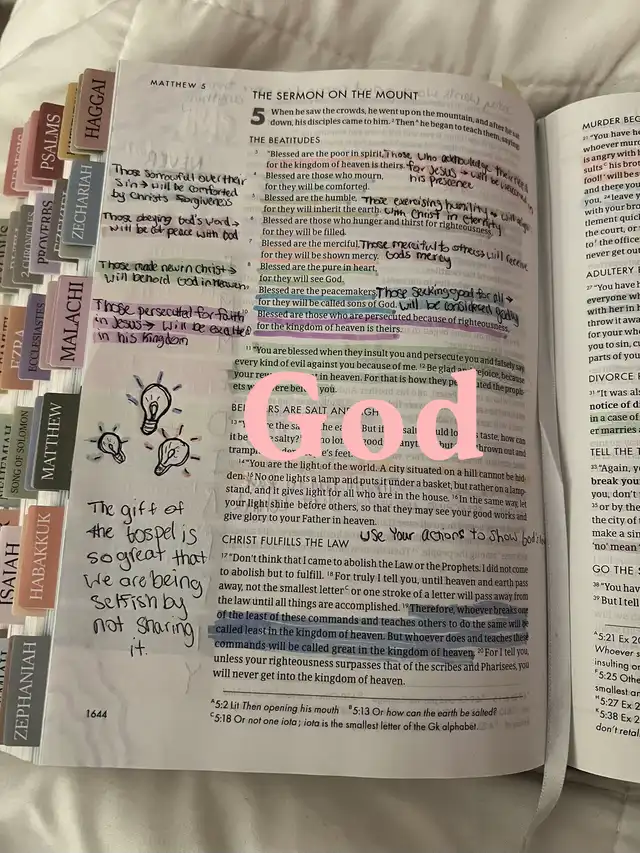 MATTHEW 5
THE SERMON ON THE MOUNT
5 When he saw the crowds, he went up on the mountain, and after he sat
down, his disciples came to him. 2 Then A he began to teach them, saying:
THE BEATITUDES
3 "Blessed are the poor in spirit,
for the kingdom of heaven is theirs.
4 Blessed are those who mourn,
for they will be comforted.
5 Blessed are the humble,
for they will inherit the earth.
6 Blessed are those who hunger and thirst for righteousness,
for they will be filled.
7 Blessed are the merciful,
for they will be shown mercy.
8 Blessed are the pure in heart,
for they will see God.
9 Blessed are the peacemakers,
for they will be called sons of God.
10 Blessed are those who are persecuted because of righteousness,
for the kingdom of heaven is theirs.
Those who acknowledge their need
for Jesus → will be
his presence
Those exercising humility →
with Christ in eternity
Those merciful to others will receive
God's mercy
Those seeking good for all →
will be considered
Those sorrowful over their
sin → will be comforted
by Christs Forgiveness
Those obeying God's word →
will be at peace with God
Those made new in Christ →
will behold God in Heaven
Those persecuted for faith
in Jesus → will be exalted
in his Kingdom
11 "You are blessed when they insult you and persecute you and falsely say
every kind of evil against you because of me. 12 Be glad and rejoice, because
your in heaven. For that is how they persecuted the proph-
ets were before you.
God
ARE SALT AND
13
taste, how can
it be salty? good thrown out and
feet.
14 "You are the light of the world. A city situated on a hill cannot be hid-
den. 15 No one lights a lamp and puts it under a basket, but rather on a lamp-
stand, and it gives light for all who are in the house. 16 In the same way, let
your light shine before others, so that they may see your good works and
give glory to your Father in heaven.
use your actions to show
CHRIST FULFILLS THE LAW
17 "Don't think that I came to abolish the Law or the Prophets. I did not come
to abolish but to fulfill. 18 For truly I tell you, until heaven and earth pass
away, not the smallest letter C or one stroke of a letter will pass away from
the law until all things are accomplished. 19 Therefore, whoever breaks one
of the least of these commands and teaches others to do the same will be
called least in the kingdom of heaven. But whoever does and teaches these
commands will be called great in the kingdom of heaven. 20 For I tell you,
unless your righteousness surpasses that of the scribes and Pharisees, you
will never get into the kingdom of heaven.
The gift of
the Gospel is
so great that
we are being
selfish by
not sharing
it.
1644
A 5:2 Lit Then opening his mouth B 5:13 Or how can the earth be salted?
C 5:18 Or not one iota; iota is the smallest letter of the Gk alphabet.
HAGGAI
PSALMS
ZECHARIAH
PROVERBS
2 CHRONICLES
MALACHI
ECCLESIASTES
EZRA
MATTHEW
SONG OF SOLOMON
HABAKKUK
ISAIAH
ZEPHANIAH
MURDER BEG
21 "You have
whoever murd
is angry with h
sults his brot
fool!' will be s
and there you
you, 24 leave y
with your bro
tlement quic
the court, or
to the office
never get out
ADULTERY
27 "You have
everyone w
with her in h
throw it awa
for you to
you to sin, cu
parts of you
DIVORCE
31 "It was als
notice of di
in a case of
er marries a
TELL THE T
33 "Again, y
break your
you, don't
35 or by the
the city of
make a sin
'no' mean
GO THE S
38 "You hav
39 But I tell
A 5:21 Ex
Whoever s
insulting or
5:25 Othe
smallest ar
5:27 Ex 2
5:38 Ex 2
don't retal